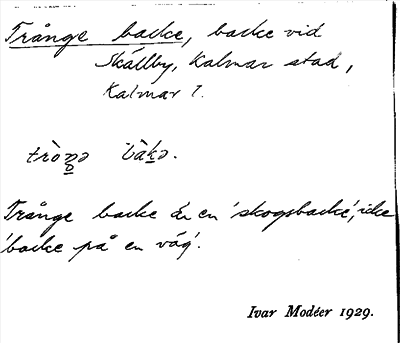 Trånge backe, backe vid
Skällby, Kalmar stad,
Kalmar l.
bàkə.
Trånge backe är en 'skogsbacke', icke
'backe på en väg'.
Ivar Modéer 1929.